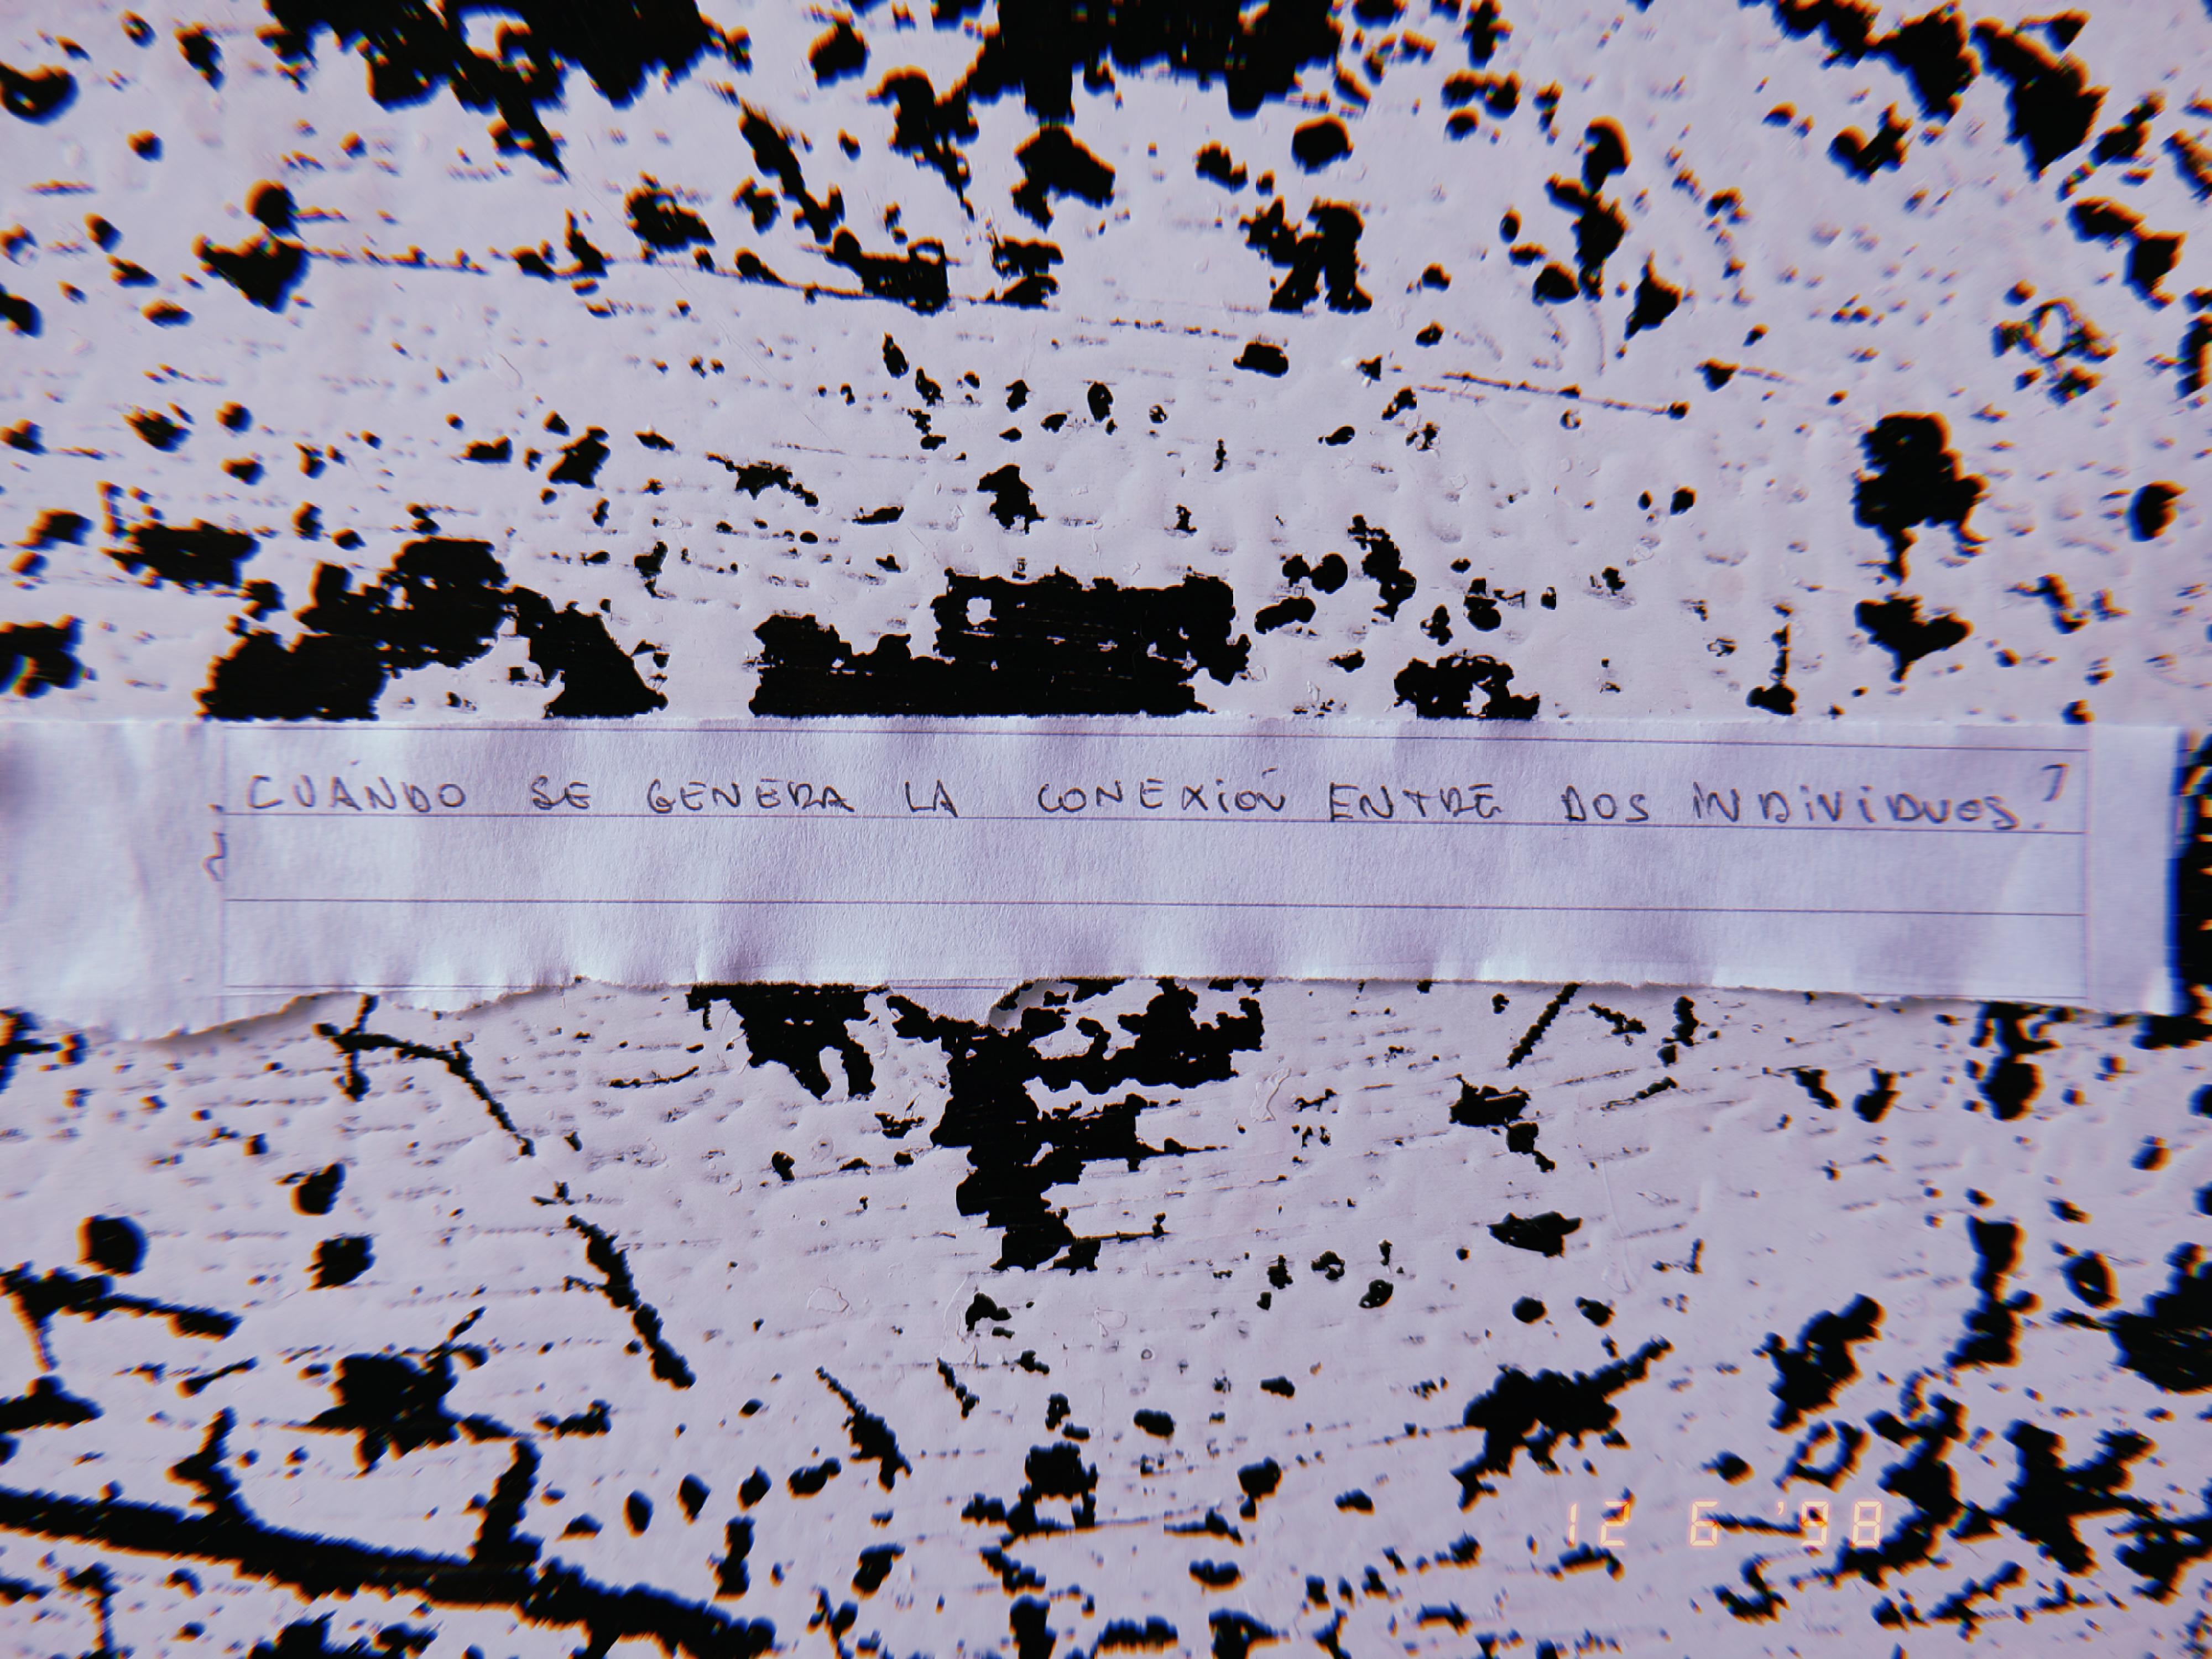 ¿CUÁNDO SE GENERA LA CONEXIÓN ENTRE DOS INDIVIDUOS?
12 6 '98